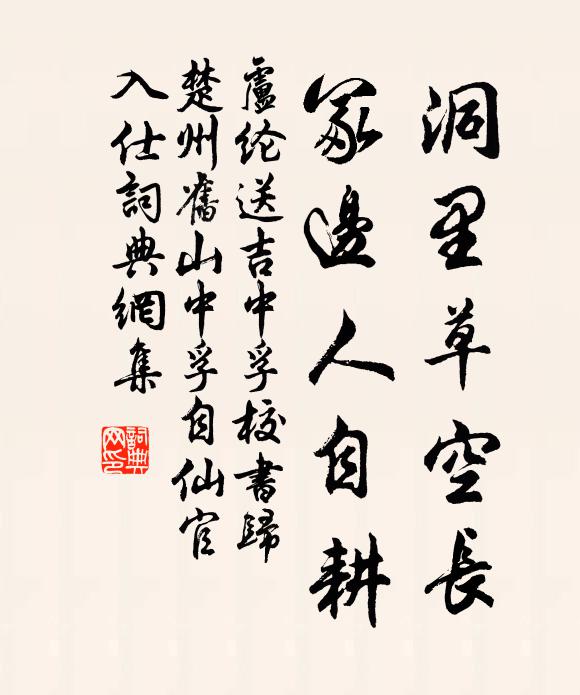 洞里草空長
冢邊人自耕
盧綸送吉中孚校書歸
楚州舊山中孚自仙官
入仕詞典網集
詞典
網印